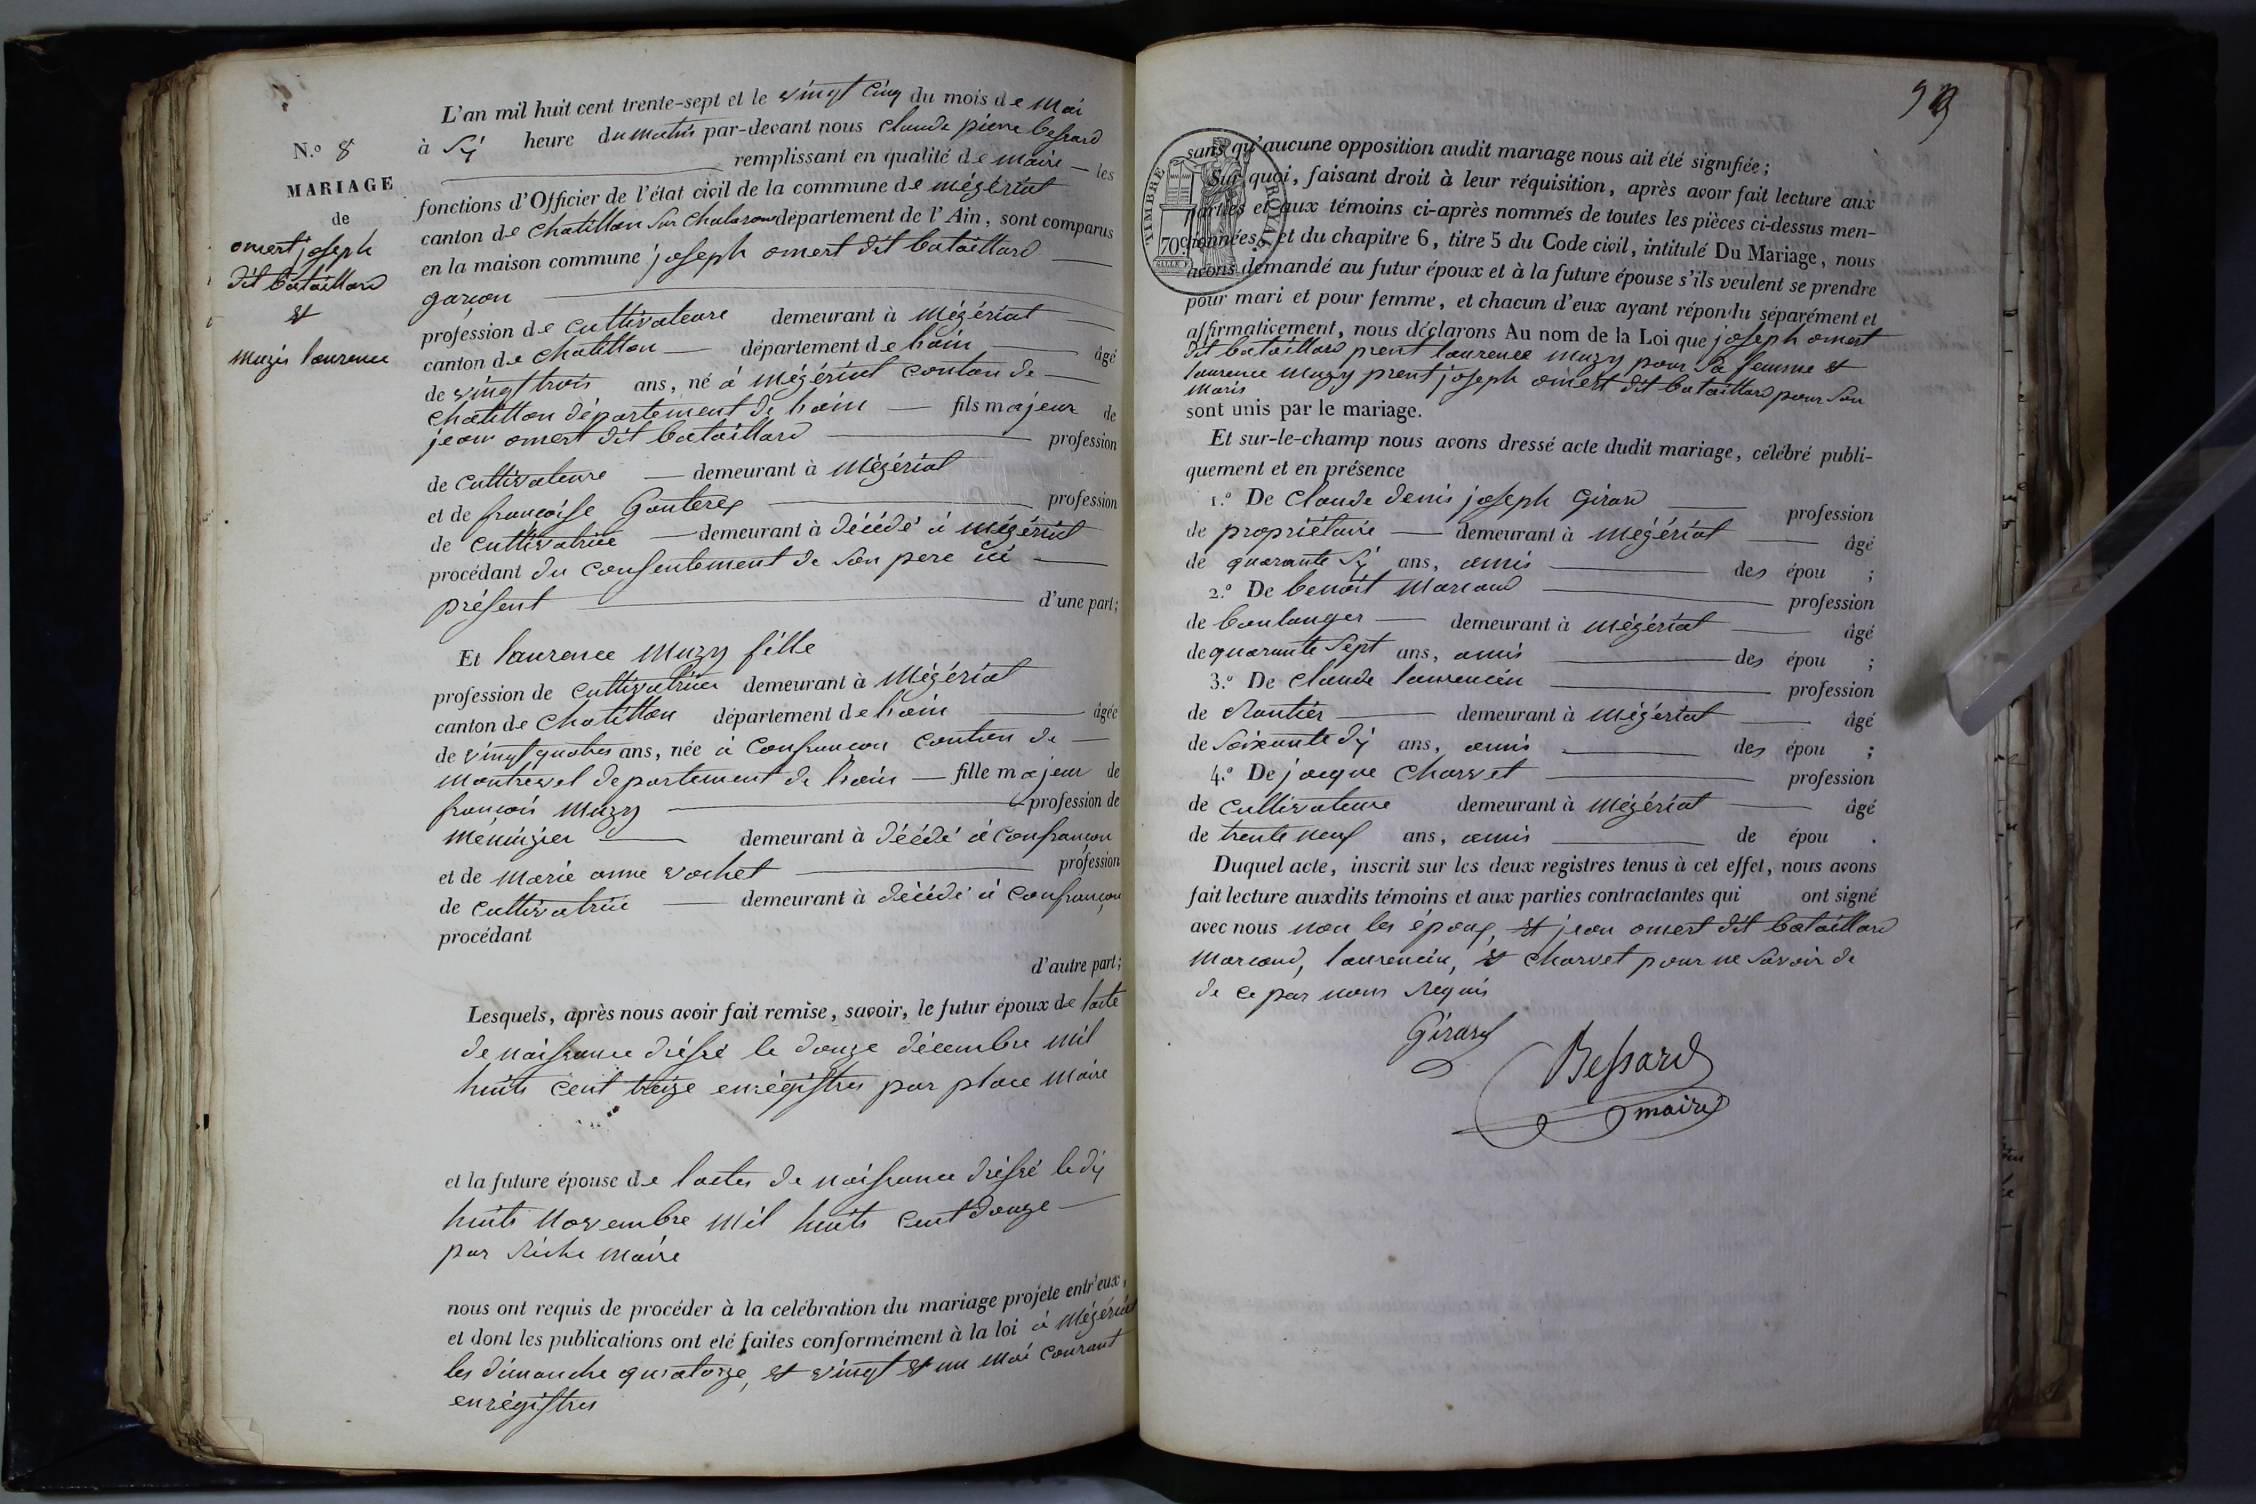 N.o 8
MARIAGE
de
omert joseph
dit bataillard
et
Muzis laurence
L'an mil huit cent trente-sept et le vingt cinq du mois de Mai
à Sij heure du matin par-devant nous claude pierre bessard
remplissant en qualité de maire les
fonctions d'Officier de l'état civil de la commune de mégériat
canton de chatillon sur chalarone département de l'Ain, sont comparus
en la maison commune joseph omert dit bataillard
garçon
profession de cultivateure demeurant à Mégériat
canton de chatillon département de l'ain âgé
de vingt trois ans, né à Mégériat canton de
chatillon département de l'ain fils majeur de
jean omert dit bataillard profession
de cultivateure demeurant à Mégériat
et de françoise Gouterex profession
de cultivatrice demeurant à décédé à mégériat
procédant du consentement de son pere ici
présent d'une part;
Et laurence Muzy fille
profession de cultivatrice demeurant à Mégériat
canton de Chatillon département de l'ain âgée
de vingt quatres ans, née à Confrancon canton de
Montrevel departement de l'ain fille majeur de
françois Muzy profession de
Menuizier demeurant à décédé à confrançon
et de Marie anne vochet profession
de cultivatrice demeurant à décédé à confrançon
procédant
d'autre part;
Lesquels, après nous avoir fait remise, savoir, le futur époux de l'acte
de naissance dréssé le douze décembre mil
huits cent treize enrégistres par place Maire
et la future épouse de l'actes de naissance dréssé le dij
huits Novembre Mil huits cent douze
par Riche Maire
nous ont requis de procéder à la celébration du mariage projete entr'eux,
et dont les publications ont eté faites conformément à la loi à Mégériat
les dimanche quatorze, et vingt et un mai courant
enrégistres
99
TIMBRE ROYAL
70c
sans qu'aucune opposition audit mariage nous ait été signifiée;
Sur quoi, faisant droit à leur réquisition, après avoir fait lecture aux
parties et aux témoins ci-après nommés de toutes les pièces ci-dessus men-
tionnées, et du chapitre 6, titre 5 du Code civil, intitulé Du Mariage, nous
avons demandé au futur époux et à la future épouse s'ils veulent se prendre
pour mari et pour femme, et chacun d'eux ayant répondu séparément et
affirmativement, nous déclarons Au nom de la Loi que joseph omert
dit bataillard prent laurence muzy pour sa femme et
laurence Muzy prent joseph omert dit bataillard pour son
Maris
sont unis par le mariage.
Et sur-le-champ nous avons dressé acte dudit mariage, célébré publi-
quement et en présence
1.o De Claude denis joseph Girard profession
de propriétaire demeurant à Mégériat âgé
de quarante Sij ans, amis des épou ;
2.o De benoit Marcaud profession
de boulanger demeurant à Mégériat âgé
de quarante Sept ans, amis des épou ;
3.o De claude laurencin profession
de Rantier demeurant à Mégériat âgé
de Soixante dij ans, amis des épou ;
4.o De jacque Charvet profession
de cultivateure demeurant à Mégériat âgé
de trente neuf ans, amis de épou .
Duquel acte, inscrit sur les deux registres tenus à cet effet, nous avons
fait lecture auxdits témoins et aux parties contractantes qui ont signé
avec nous non les époux, et jean omert dit bataillard
Marcaud, laurencin, et Charvet pour ne savoir de
de ce par nous Requis
Girard
Bessard
maire